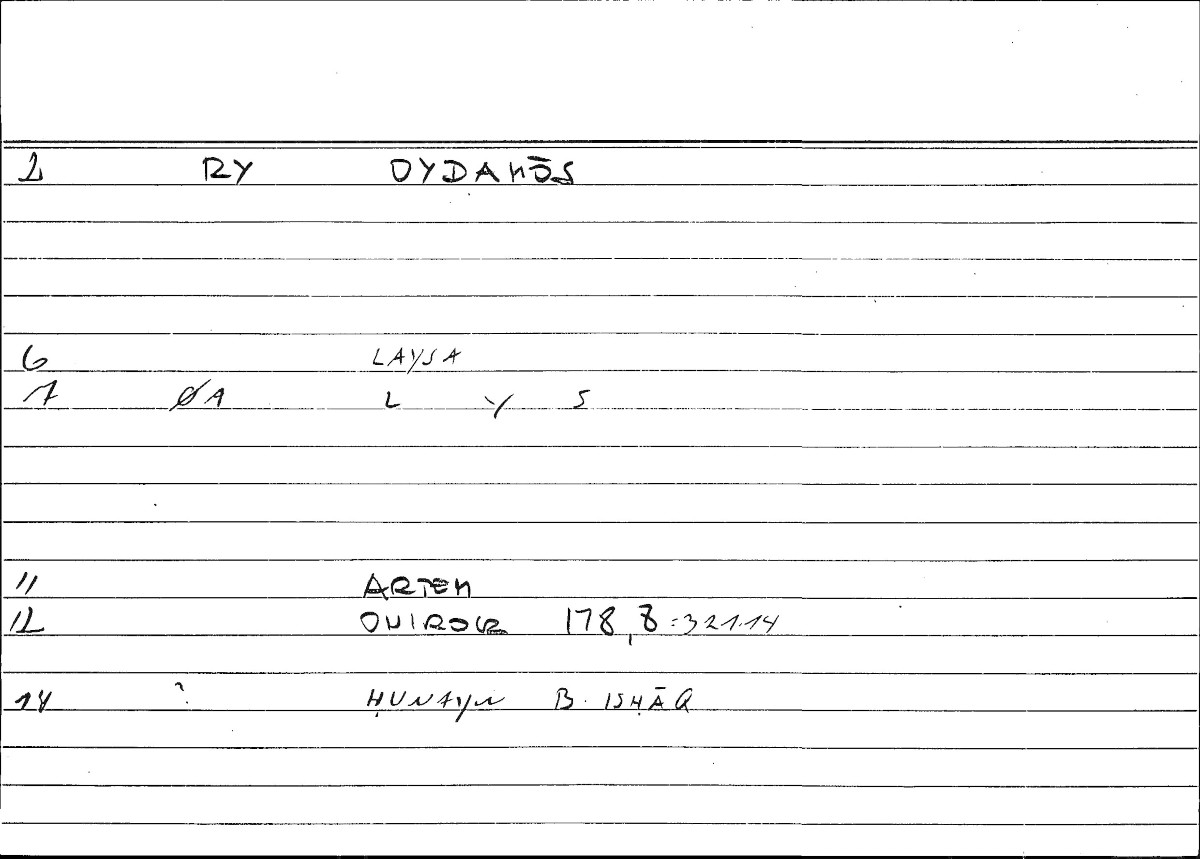 2 RY OYDAnŌS
6 LAYSA
7 ØA L Y S
11 ARTEM
12 ONIROCR 178,8=321.14
14 ? ḤUNAYN B. ISḤĀQ